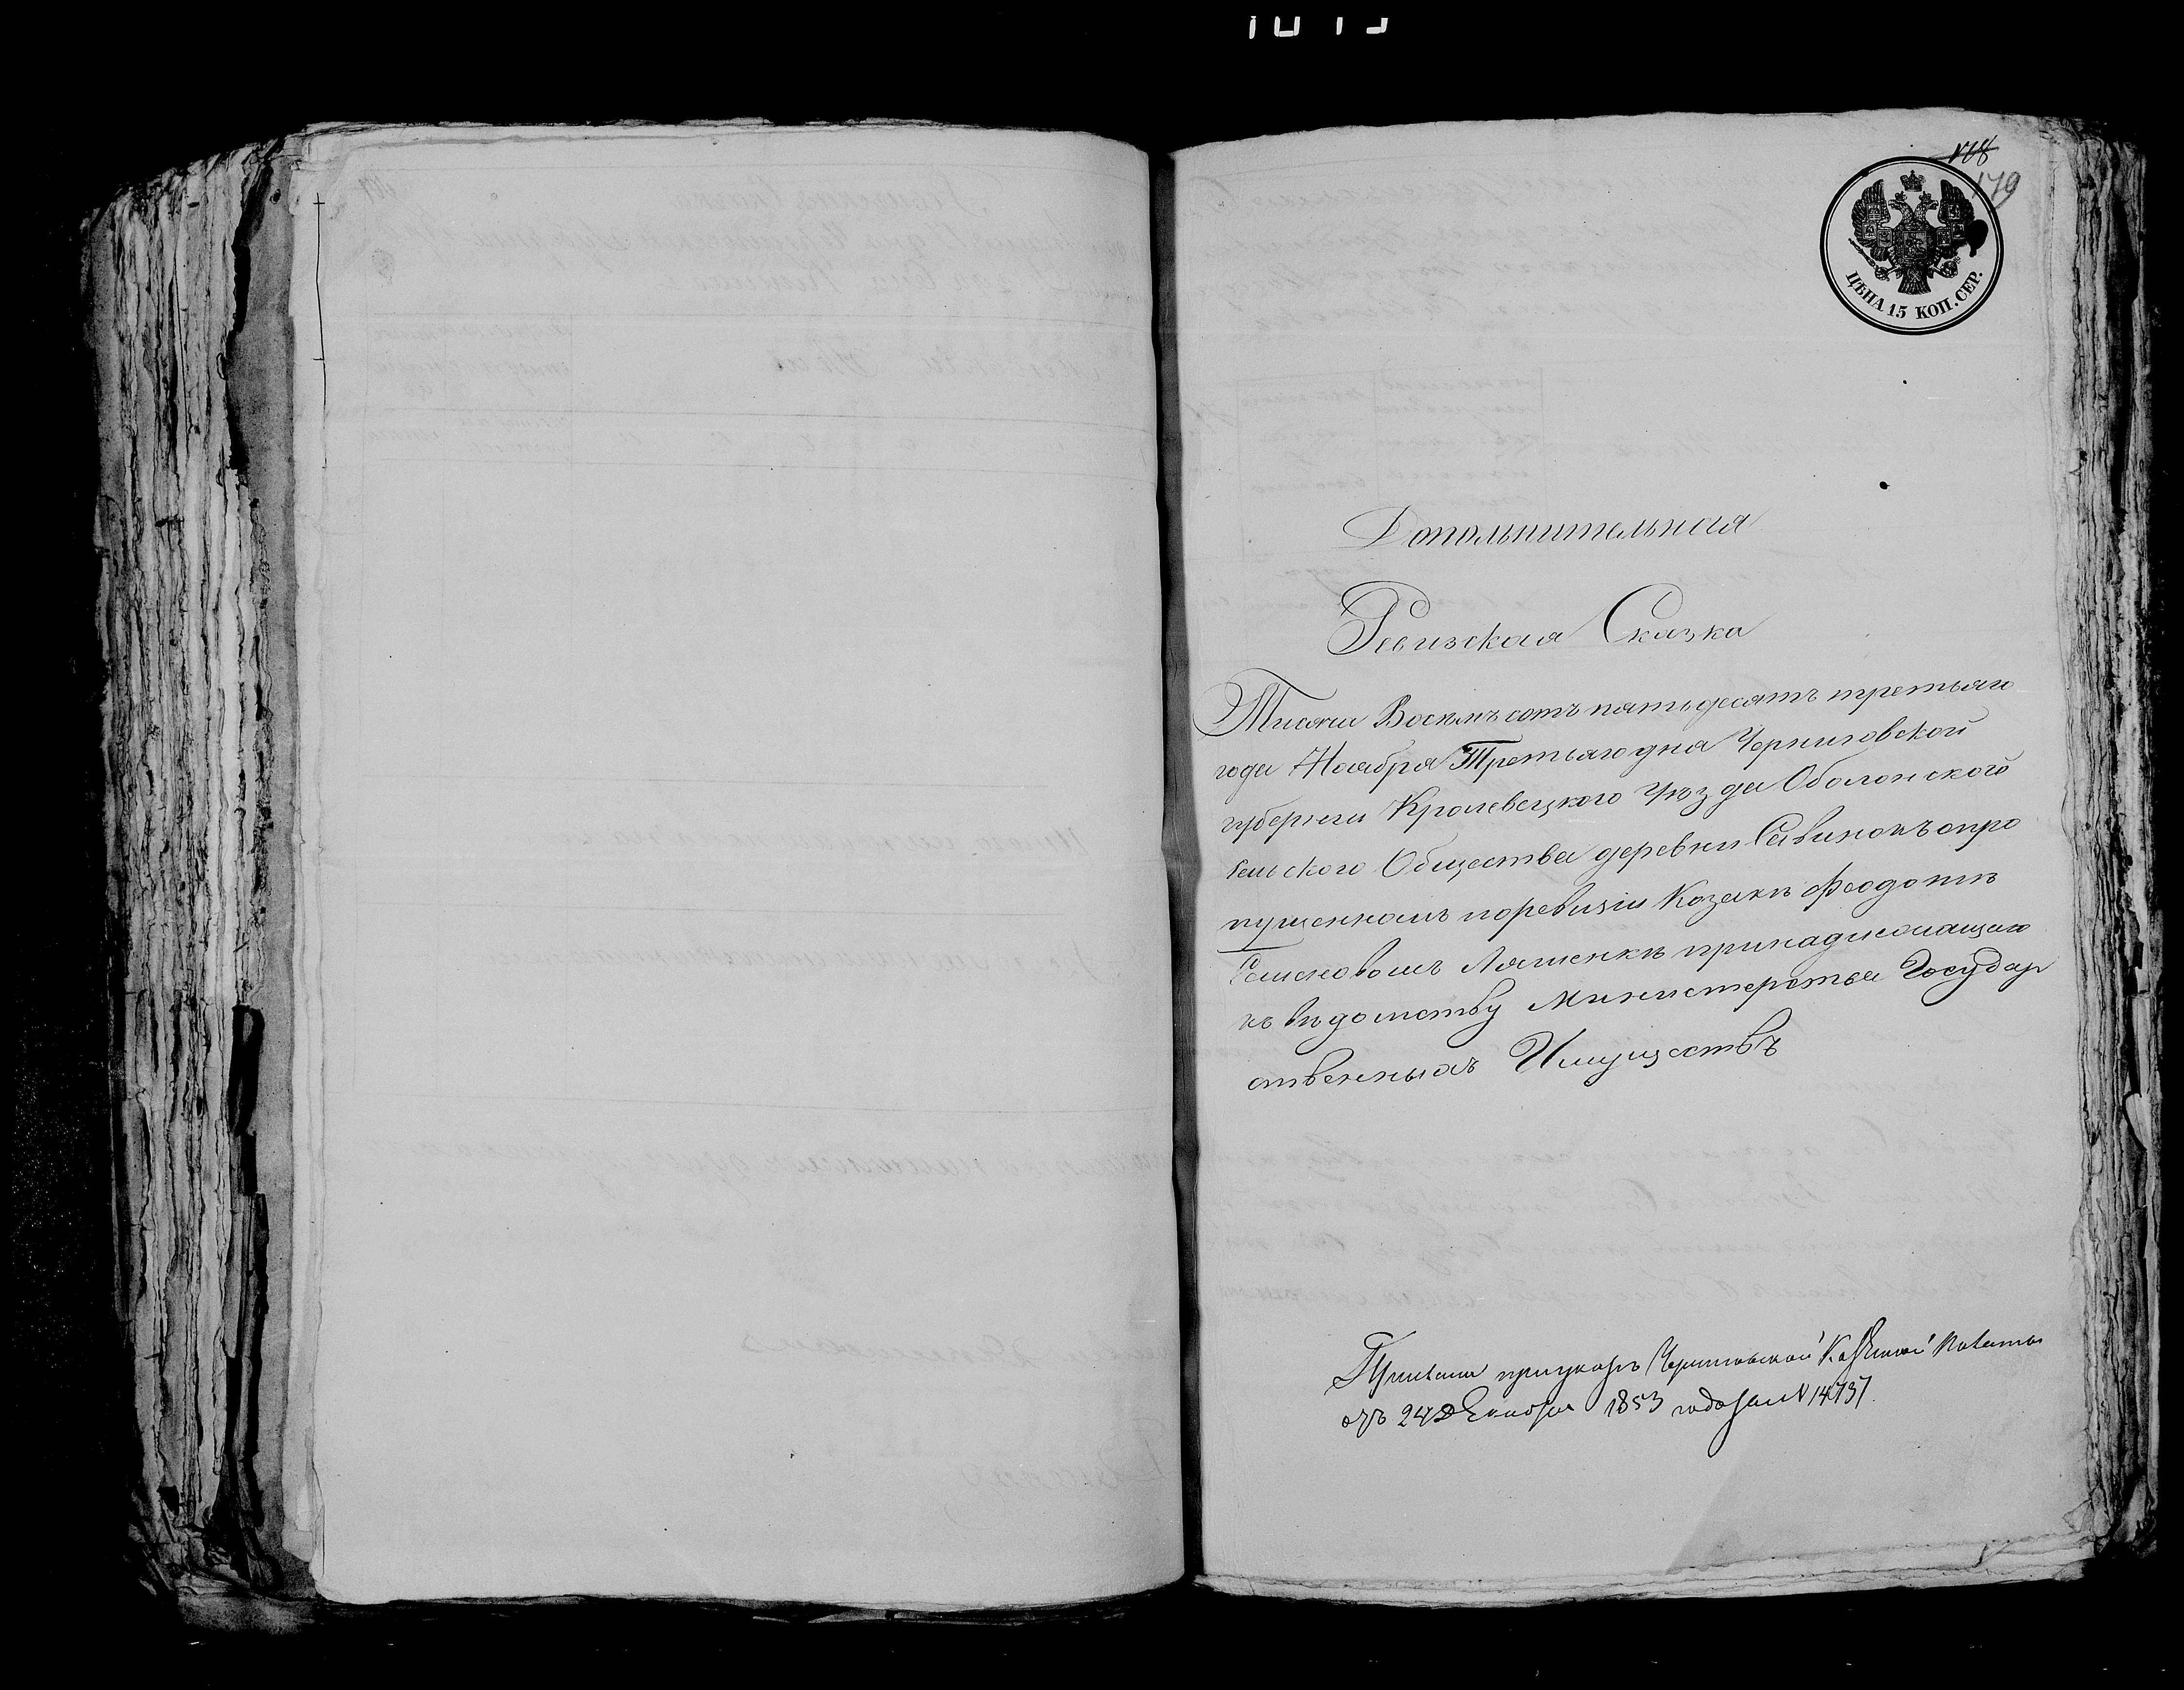 178
179
ЦѢНА 15 КОП. СЕР.
Дополнительная
Ревизская Сказка
Тисячи Восемъ сотъ пятьдесятъ третьяго
года Ноября Третьяго дня Черниговской
губернии Кролевецкого Уѣзда Оболонского
Сельского Общества деревни Савинокъ о про
пущенномъ по ревизіи Козакѣ Феодотѣ
Семеновомъ Ляшенкѣ принадлежащаго
къ вѣдомству Министерства Государ
ственныхъ Имуществъ
при указѣ Черниговской Казенной Палаты
отъ 24 Декабря 1853 года за № 14737